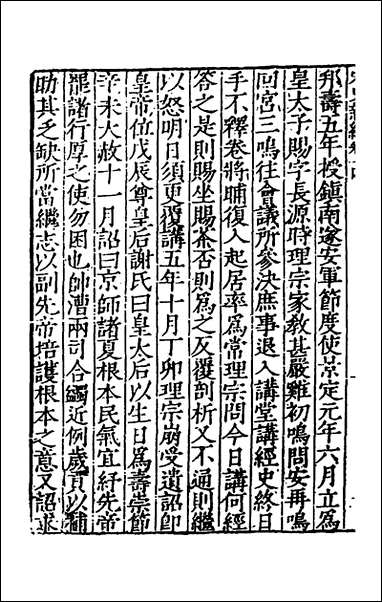 邦壽五年授鎮南遂安軍節度使景定元年六月立為
皇太子賜字長源時理宗家教甚嚴雞初鳴問安再鳴
回宮三鳴往會議所參決庶事退入講堂講經史終日
手不釋卷將晡復入起居率爲常理宗問今日講何經
答之是則賜坐賜茶否則爲之反覆剖析又不通則繼
以怒明日須更覆講五年十月丁卯理宗崩受遺詔卽
皇帝位戊辰尊皇后謝氏曰皇太后以生日爲壽崇節
辛未大赦十一月詔曰京師諸夏根本民氣宜紓先帝
詔諸行厚之使勿困也帥漕兩司合蠲近例歲貢以補
助其乏缺所當繼志以副先帝培護根本之意又詔求